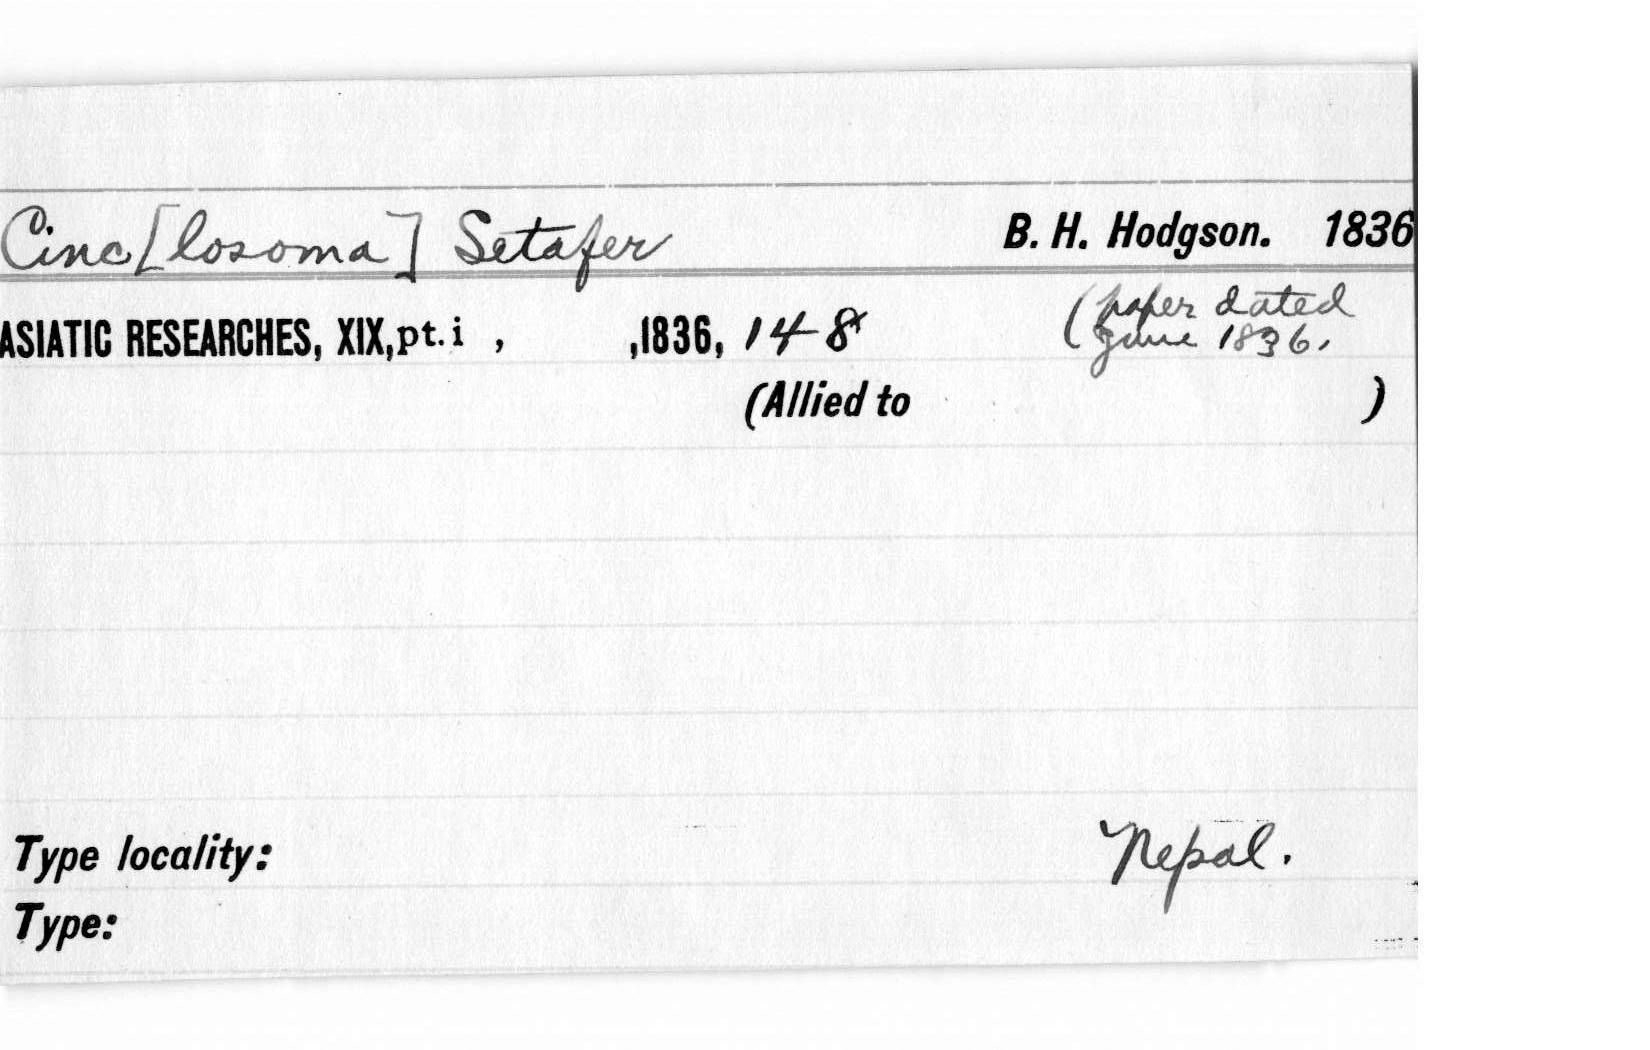 Cinc[losoma] Setafer B. H. Hodgson. 1836
ASIATIC RESEARCHES, XIX, pt. i , ,1836, 148 (paper dated
June 1836.
(Allied to )
Type locality: Nepal.
Type: